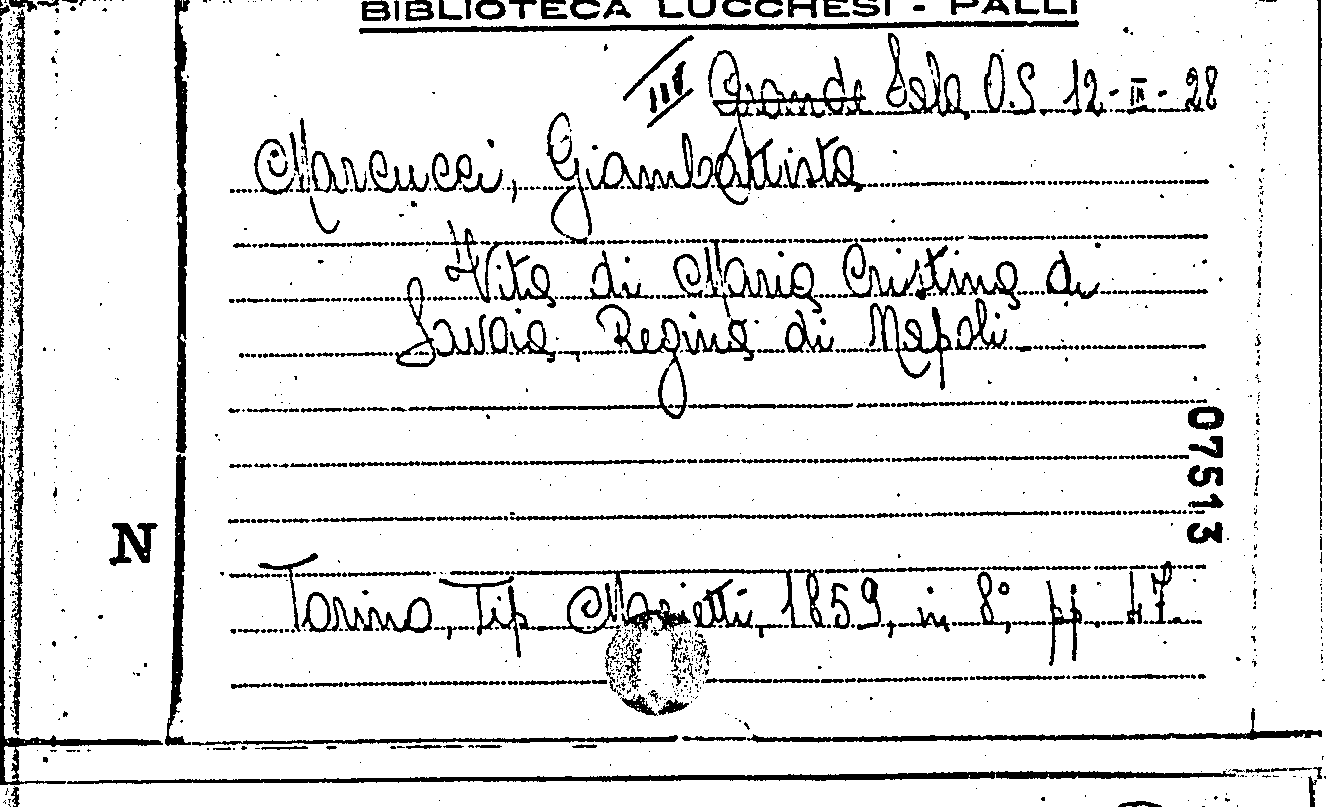 BIBLIOTECA LUCCHESI - PALLI
III Grande Sala O.S. 12-III-28
Marcucci, Giambattista
Vita di Maria Cristina di
Savoia, Regina di Napoli.
07513
N
Torino, Tip. Marietti, 1859, in 8°, pp. 47.